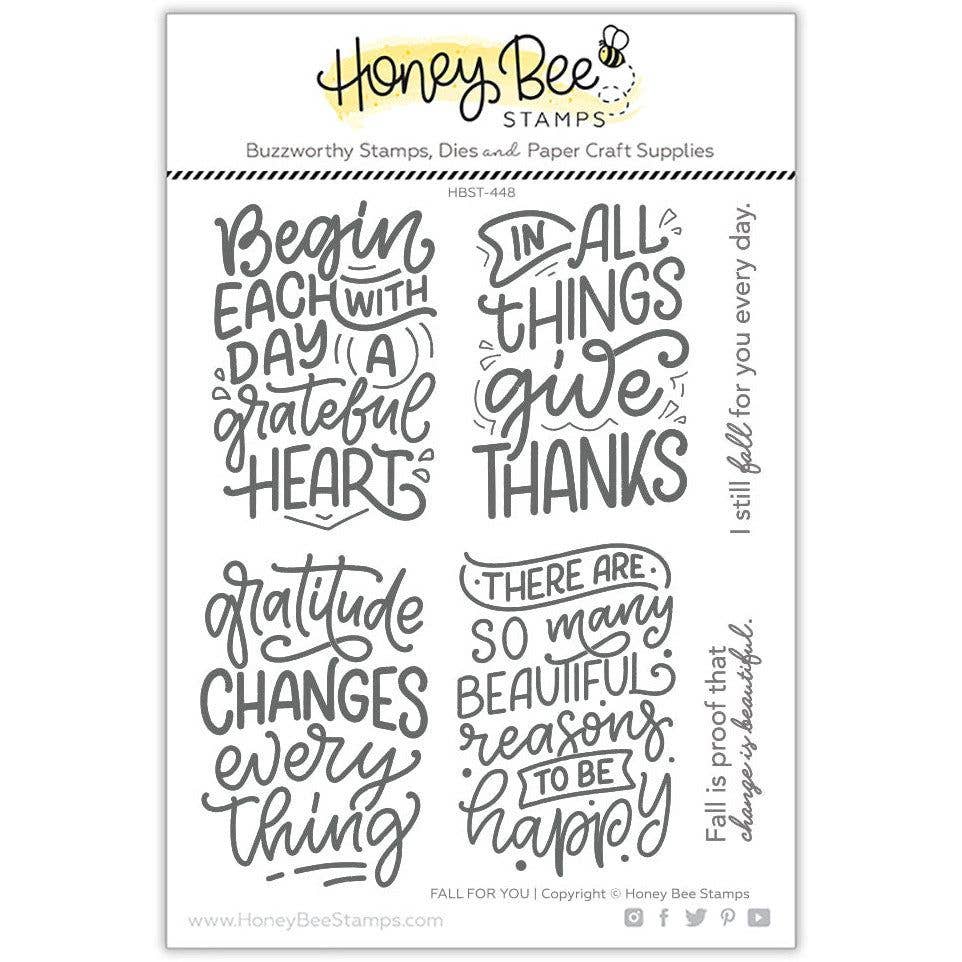 Honey Bee
STAMPS
Buzzworthy Stamps, Dies and Paper Craft Supplies
HBST-448
Begin
EACH WITH
DAY A
grateful
HEART
IN ALL
tHINGS
give
THANKS
I still fall for you every day.
gratitude
CHANGES
every
thing
·THERE ARE·
SO many
BEAUTIFUL
reasons
TO BE
happy
Fall is proof that
change is beautiful.
FALL FOR YOU | Copyright © Honey Bee Stamps
www.HoneyBeeStamps.com